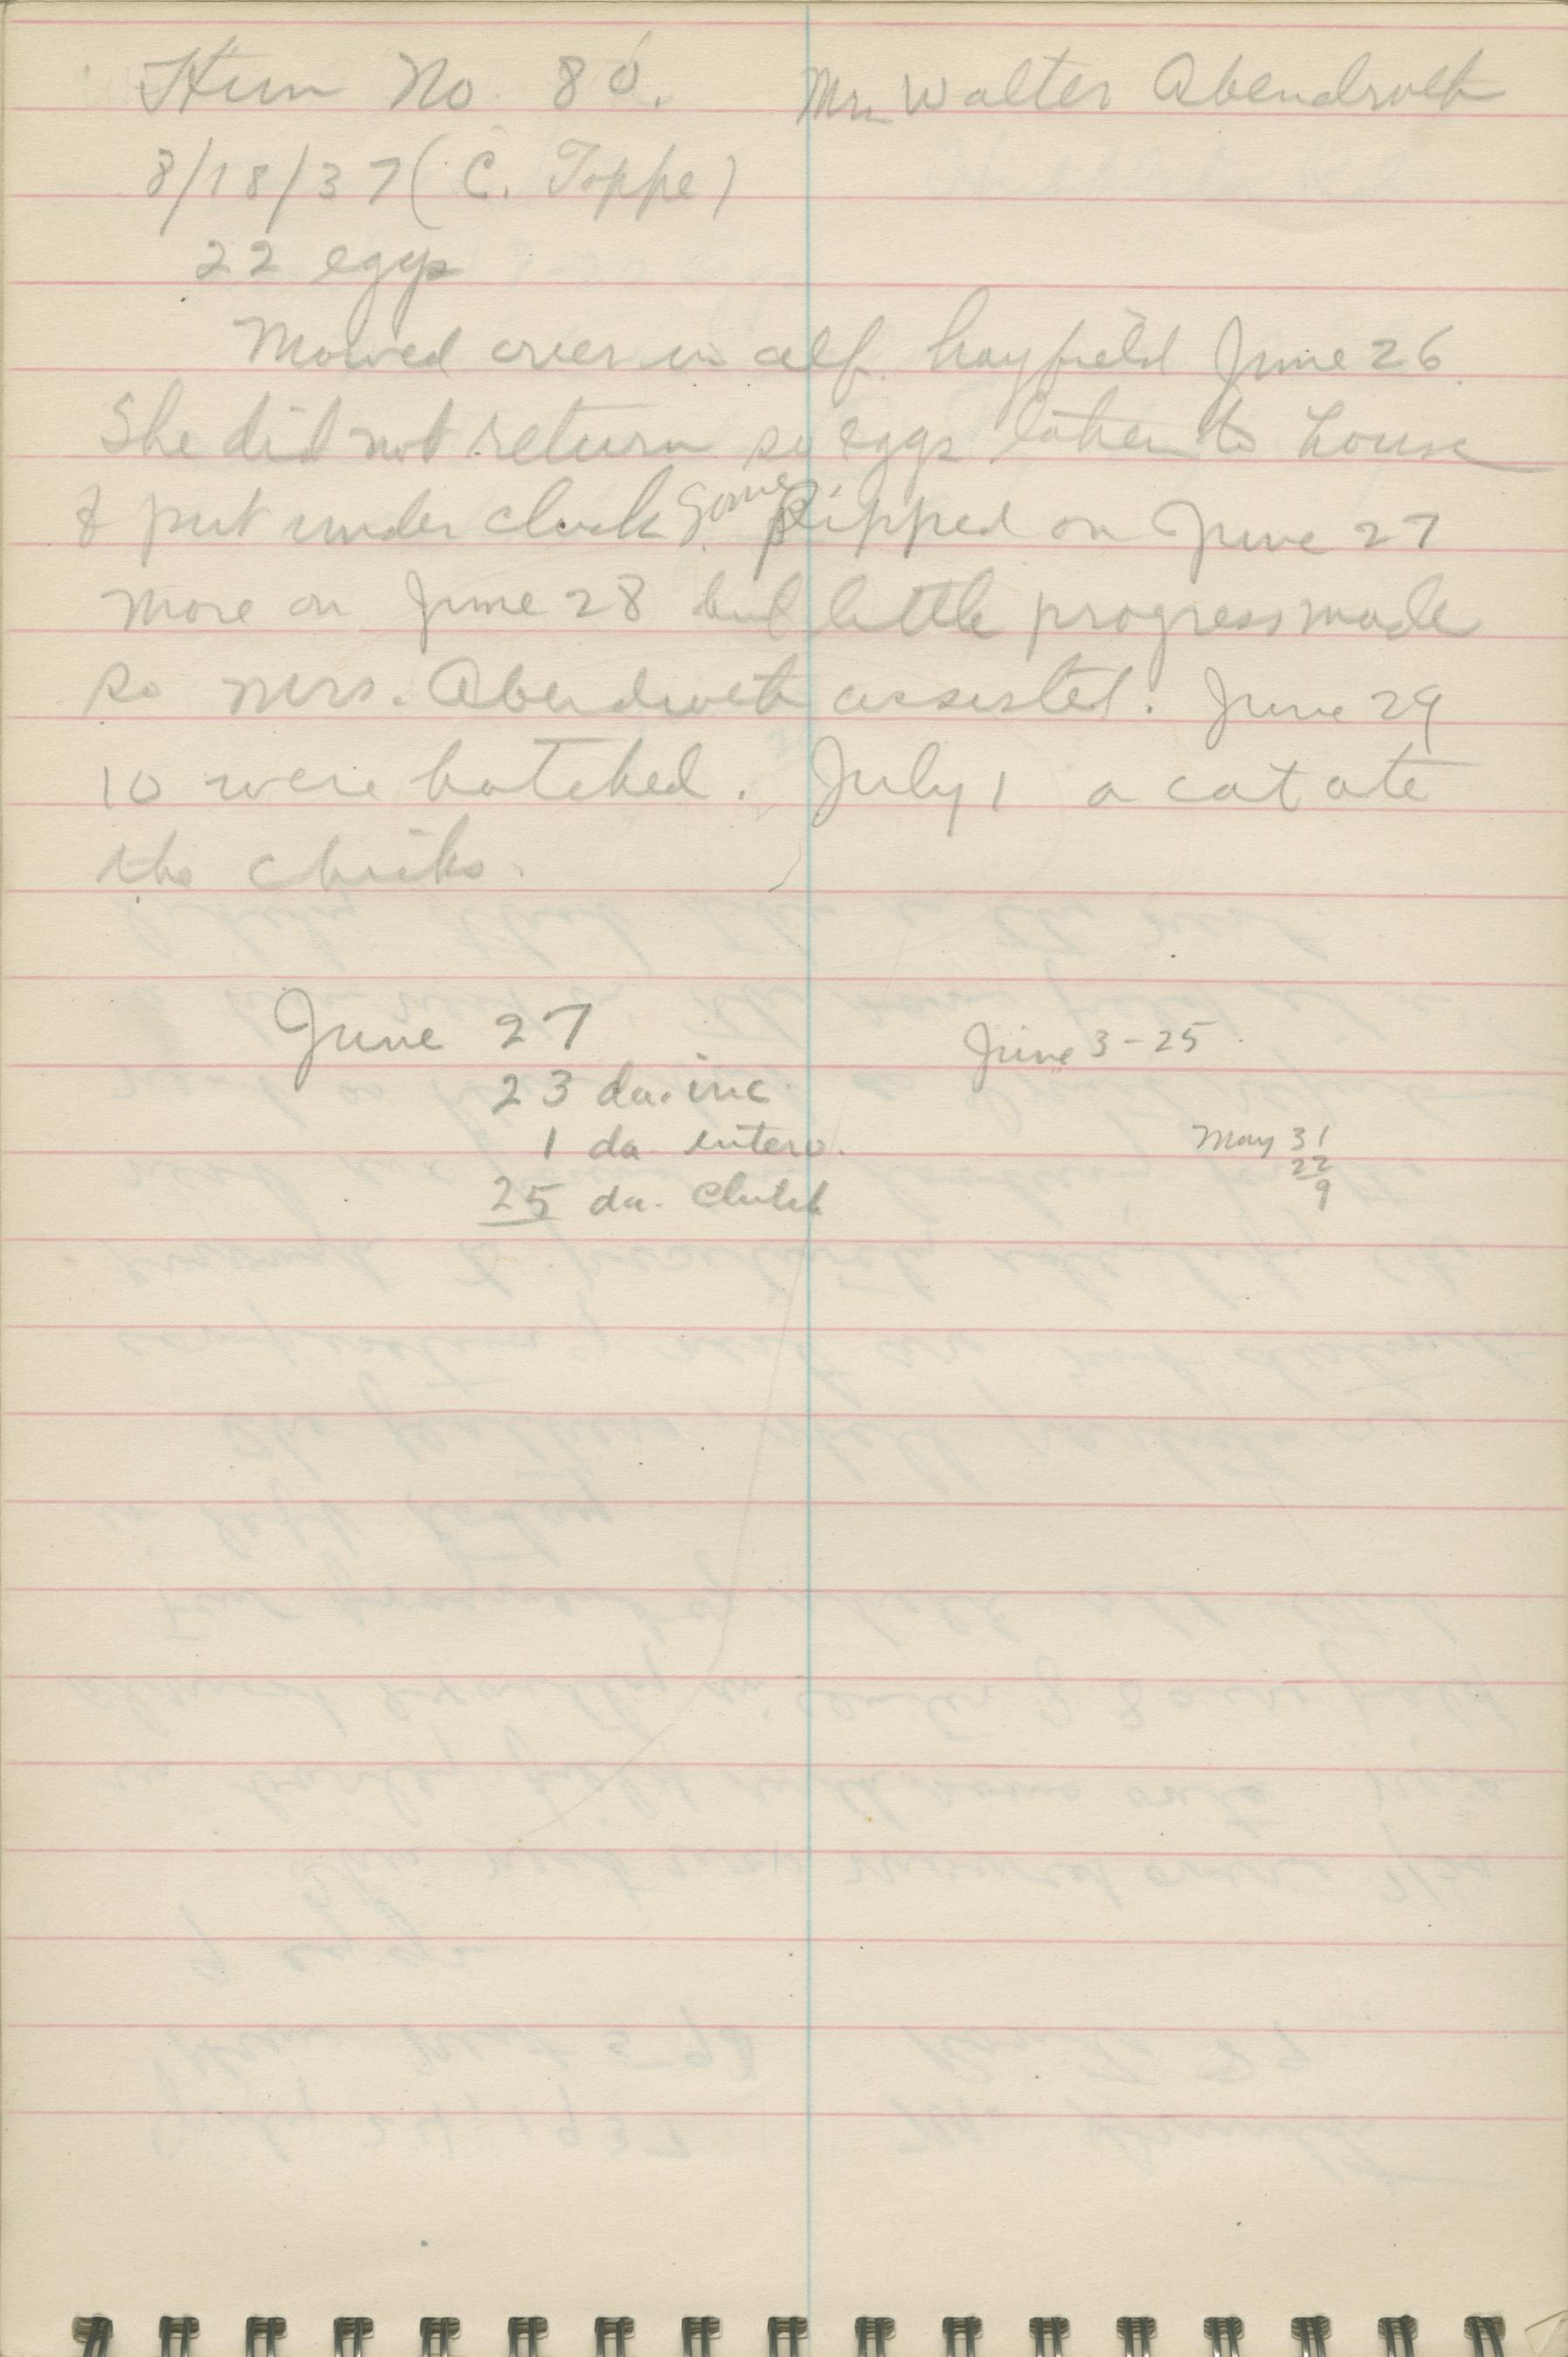 Hun No 80. Mr. Walter Abendroth
8/18/37 (C. Toppe)
22 eggs
Mowed over in alf. hayfield June 26.
She did not return so eggs taken to house
& put under cluck. Some pipped on June 27
more on June 28 but little progress made
so Mrs. Abendroth assisted. June 29
10 were hatched. July 1 a cat ate
the chicks.
June 27
23 da. inc.
1 da interv.
25 da. clutch
June 3-25
May 31
22
9